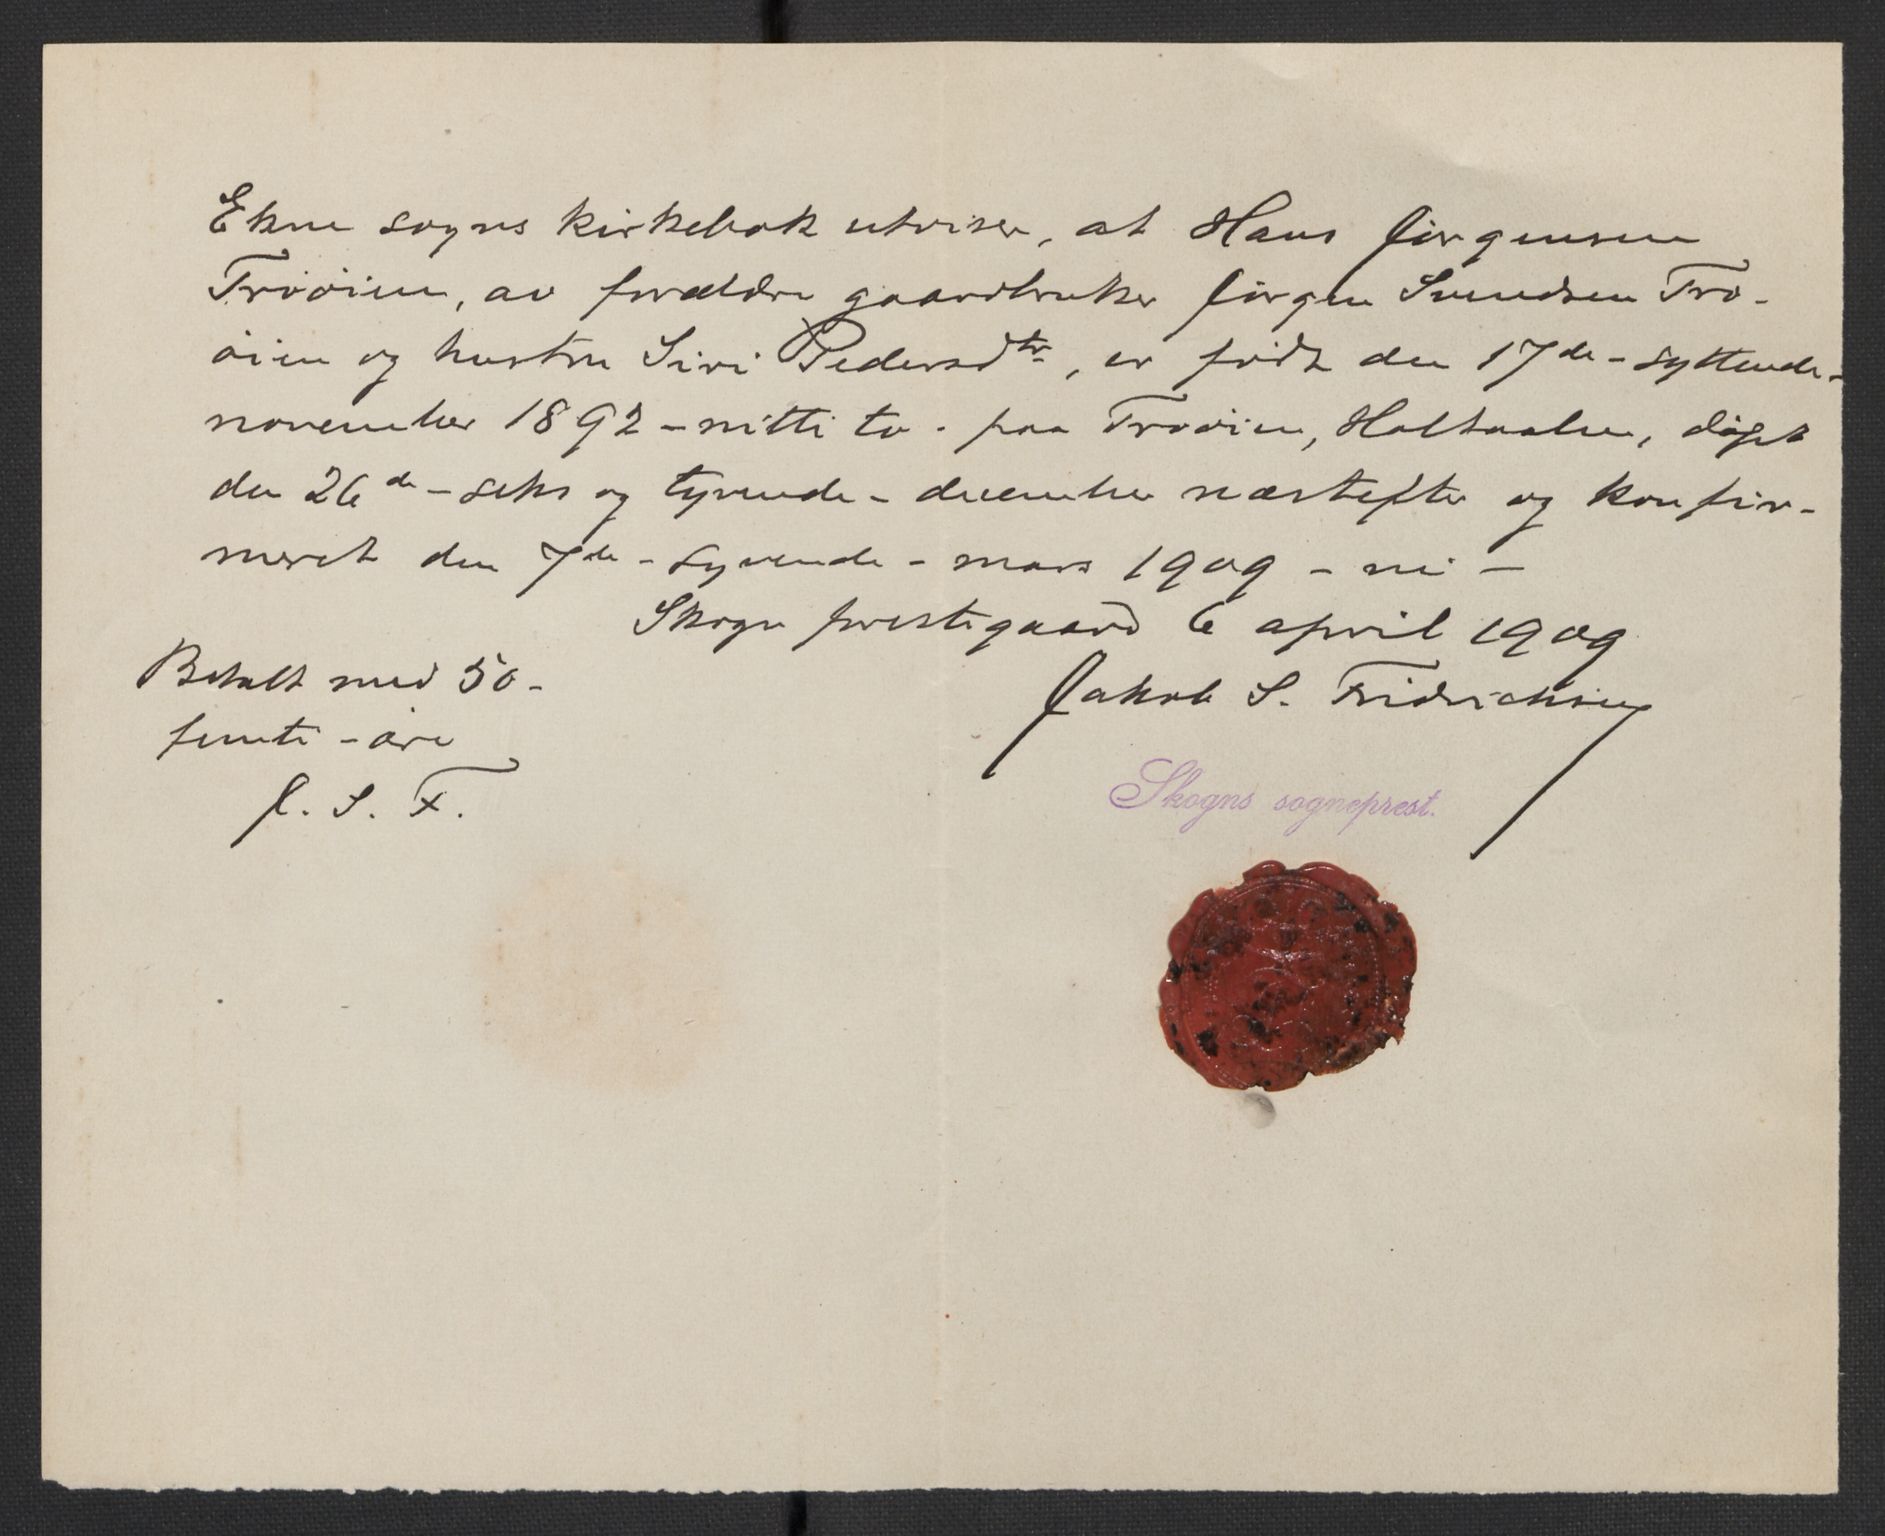 Ekne sogns kirkebok utviser, at Hans Jørgensen
Trøøien, av forældre gaardbruker Jørgen Svendsen Trø-
øien og hustru Siri Pedersdtr, er født den 17de - syttende -
november 1892 - nitti to - paa Trøøien, Holtaalen, døpt
den 26de - seks og tyvende - december næstefter og konfir-
meret den 7de - syvende - mars 1909 - ni -
Skogn prestegaard 6 april 1909
Betalt med 50 -
femti - øre
J. S. F.
Jakob S. Fridrichsen
Skogns sogneprest.